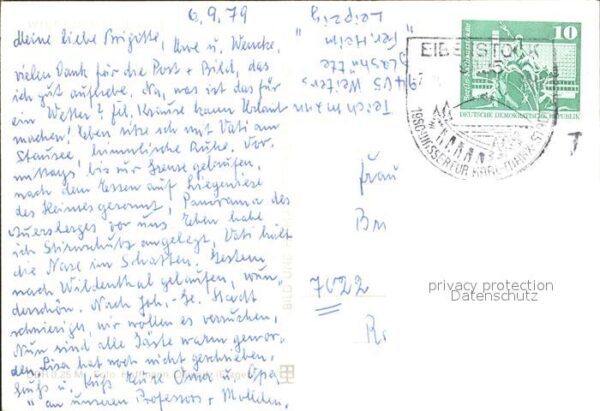 6.9.79
Meine liebe Brigotte, Uwe u. Wencke,
vielen Dank für die Post + Bild, das
ich gut aufhebe. Na, was ist das für
ein Wetter? Frl. Krause kann Urlaub
machen! Eben sitze ich mit Vati am
Stausee, himmlische Ruhe. Vor-
mittags, bis zur Grenze gelaufen,
nach dem Essen auf Liegewiese
des Heimes gesonnt, Panorama des
Auersberges vor uns. Eben habe
ich Stirnschutz angelegt, Vati hält
die Nase im Schatten. Gestern
nach Wildenthal gelaufen, wun-
derschön. Nach Joh.-Ge. Stadt
schwierig, wir wollen es versuchen.
Nun sind alle Gäste warm gewor-
den. Lisa hat noch nicht geschrieben.
Gruß u. Kuß Eure Oma u. Opa
an unseren Professor +
Teichmann
9405
Glashütte
"Fer. Heim
Leipzig"
EIBENSTOCK
10
DEUTSCHE DEMOKRATISCHE REPUBLIK
T
Frau
Br
7022
privacy protection
Datenschutz